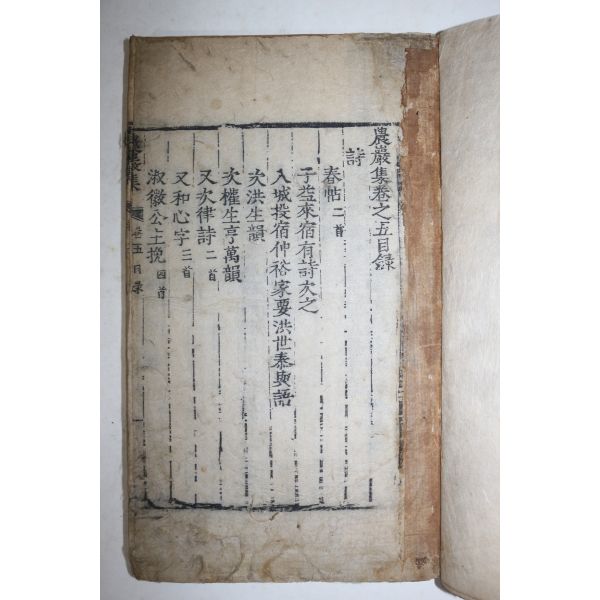 農巖集卷之五目錄
詩
春帖 二首
子益來宿有詩次之
入城投宿仲裕家要洪世泰輿語
次洪生韻
次權生亨萬韻
又次律詩 二首
又和心字 三首
淑徽公主挽 四首
農巖集 卷五目錄